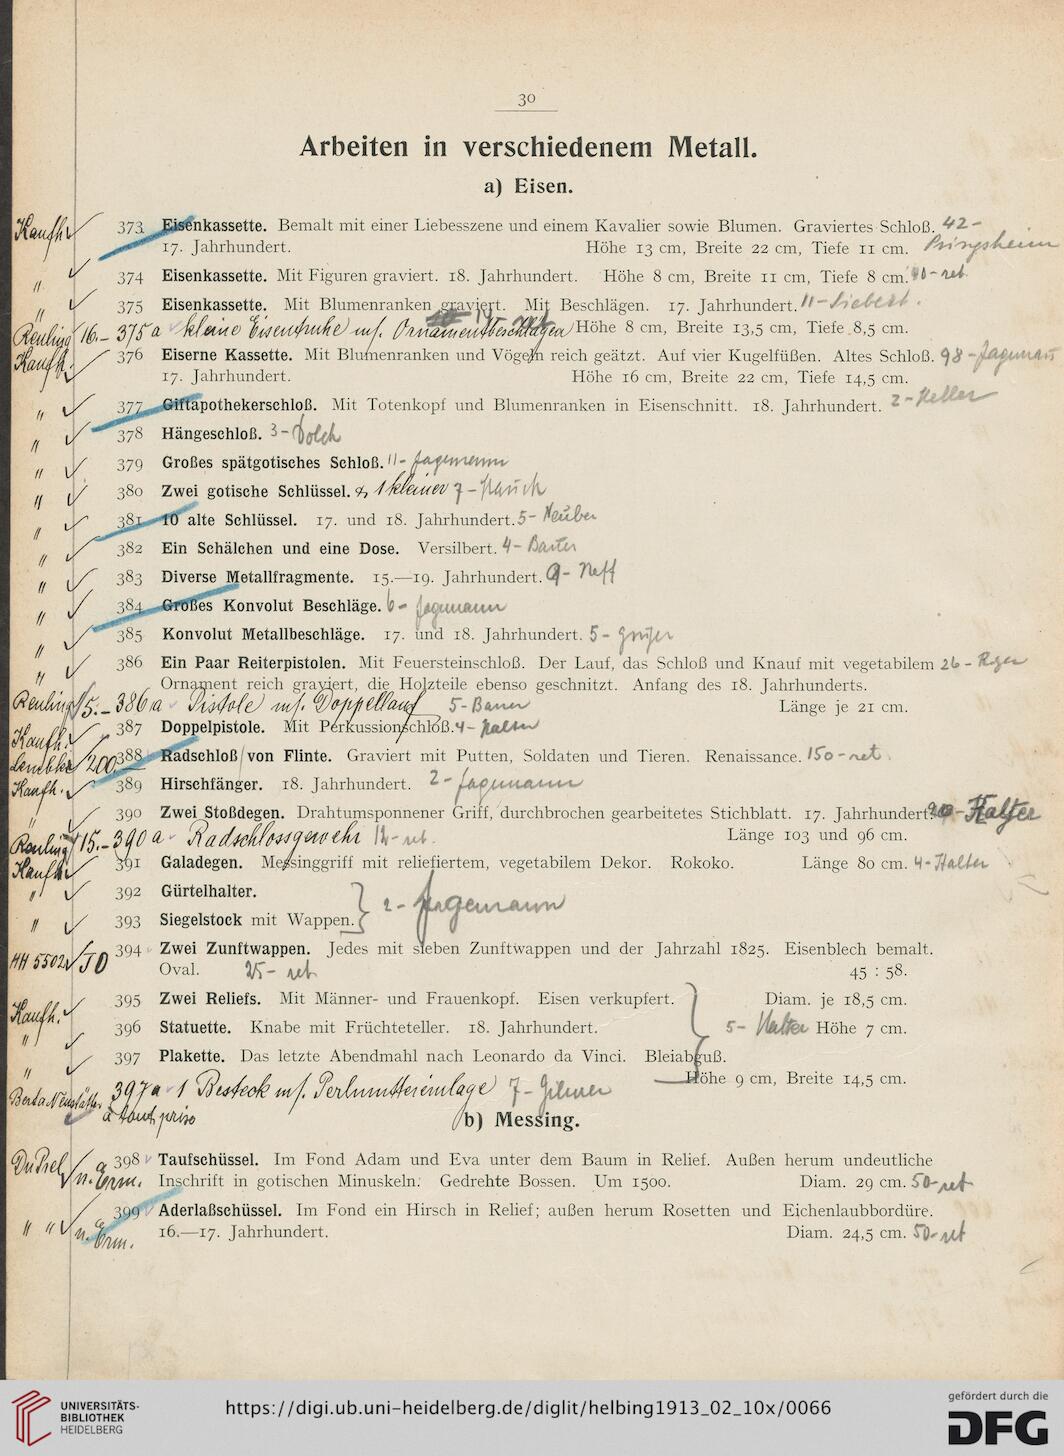 30
Arbeiten in verschiedenem Metall.
a) Eisen.
Kaufh. 373 Eisenkassette. Bemalt mit einer Liebesszene und einem Kavalier sowie Blumen. Graviertes Schloß. 42-
17. Jahrhundert. Höhe 13 cm, Breite 22 cm, Tiefe 11 cm. Pringsheim
" 374 Eisenkassette. Mit Figuren graviert. 18. Jahrhundert. Höhe 8 cm, Breite 11 cm, Tiefe 8 cm. 40-ret
" 375 Eisenkassette. Mit Blumenranken graviert. Mit Beschlägen. 17. Jahrhundert. 11-Siebert.
Höhe 8 cm, Breite 13,5 cm, Tiefe 8,5 cm.
Reuling 16.- 375a kleine Eisentruhe m/. Ornamentbeschlägen
Kaufh. 376 Eiserne Kassette. Mit Blumenranken und Vögeln reich geätzt. Auf vier Kugelfüßen. Altes Schloß. 98-
17. Jahrhundert. Höhe 16 cm, Breite 22 cm, Tiefe 14,5 cm.
" 377 Giftapothekerschloß. Mit Totenkopf und Blumenranken in Eisenschnitt. 18. Jahrhundert. 2-Heller
" 378 Hängeschloß. 3-Dolch
" 379 Großes spätgotisches Schloß. 11- Jagemann
" 380 Zwei gotische Schlüssel. & 1 kleiner 7-
" 381 10 alte Schlüssel. 17. und 18. Jahrhundert. 5- Neuber
" 382 Ein Schälchen und eine Dose. Versilbert. 4-
" 383 Diverse Metallfragmente. 15.—19. Jahrhundert. 9- Neff
" 384 Großes Konvolut Beschläge. 6- Jagemann
" 385 Konvolut Metallbeschläge. 17. und 18. Jahrhundert. 5-
" 386 Ein Paar Reiterpistolen. Mit Feuersteinschloß. Der Lauf, das Schloß und Knauf mit vegetabilem 26-
Ornament reich graviert, die Holzteile ebenso geschnitzt. Anfang des 18. Jahrhunderts.
Länge je 21 cm.
Reuling 5.- 386a Pistole m/. Doppellauf 5-Bauer
Kaufh. 387 Doppelpistole. Mit Perkussionschloß. 4- Halter
200.- 388 Radschloß von Flinte. Graviert mit Putten, Soldaten und Tieren. Renaissance. 150-ret.
Kaufh. 389 Hirschfänger. 18. Jahrhundert. 2- Jagemann
" 390 Zwei Stoßdegen. Drahtumsponnener Griff, durchbrochen gearbeitetes Stichblatt. 17. Jahrhundert. Halter
Länge 103 und 96 cm.
Reuling 15.- 390a Radschlossgewehr 12-ret.
Kaufh. 391 Galadegen. Messinggriff mit reliefiertem, vegetabilem Dekor. Rokoko. Länge 80 cm. 4-Halter
" 392 Gürtelhalter.
2- Jagemann
" 393 Siegelstock mit Wappen.
HH 5502 50 394 Zwei Zunftwappen. Jedes mit sieben Zunftwappen und der Jahrzahl 1825. Eisenblech bemalt.
Oval. 25- ret 45 : 58.
Kaufh. 395 Zwei Reliefs. Mit Männer- und Frauenkopf. Eisen verkupfert. Diam. je 18,5 cm.
" 396 Statuette. Knabe mit Früchteteller. 18. Jahrhundert. 5- Halter Höhe 7 cm.
" 397 Plakette. Das letzte Abendmahl nach Leonardo da Vinci. Bleiabguß.
Höhe 9 cm, Breite 14,5 cm.
Berta Neustätter 397a 1 Besteck m/. Perlmuttereinlage 7-
à tout prix
b) Messing.
Du Prel n. Erm. 398 Taufschüssel. Im Fond Adam und Eva unter dem Baum in Relief. Außen herum undeutliche
Inschrift in gotischen Minuskeln. Gedrehte Bossen. Um 1500. Diam. 29 cm. 50-ret
" " n. Erm. 399 Aderlaßschüssel. Im Fond ein Hirsch in Relief; außen herum Rosetten und Eichenlaubbordüre.
16.—17. Jahrhundert. Diam. 24,5 cm. 50-ret
UNIVERSITÄTS-
BIBLIOTHEK
HEIDELBERG
https://digi.ub.uni-heidelberg.de/diglit/helbing1913_02_10x/0066
gefördert durch die
DFG